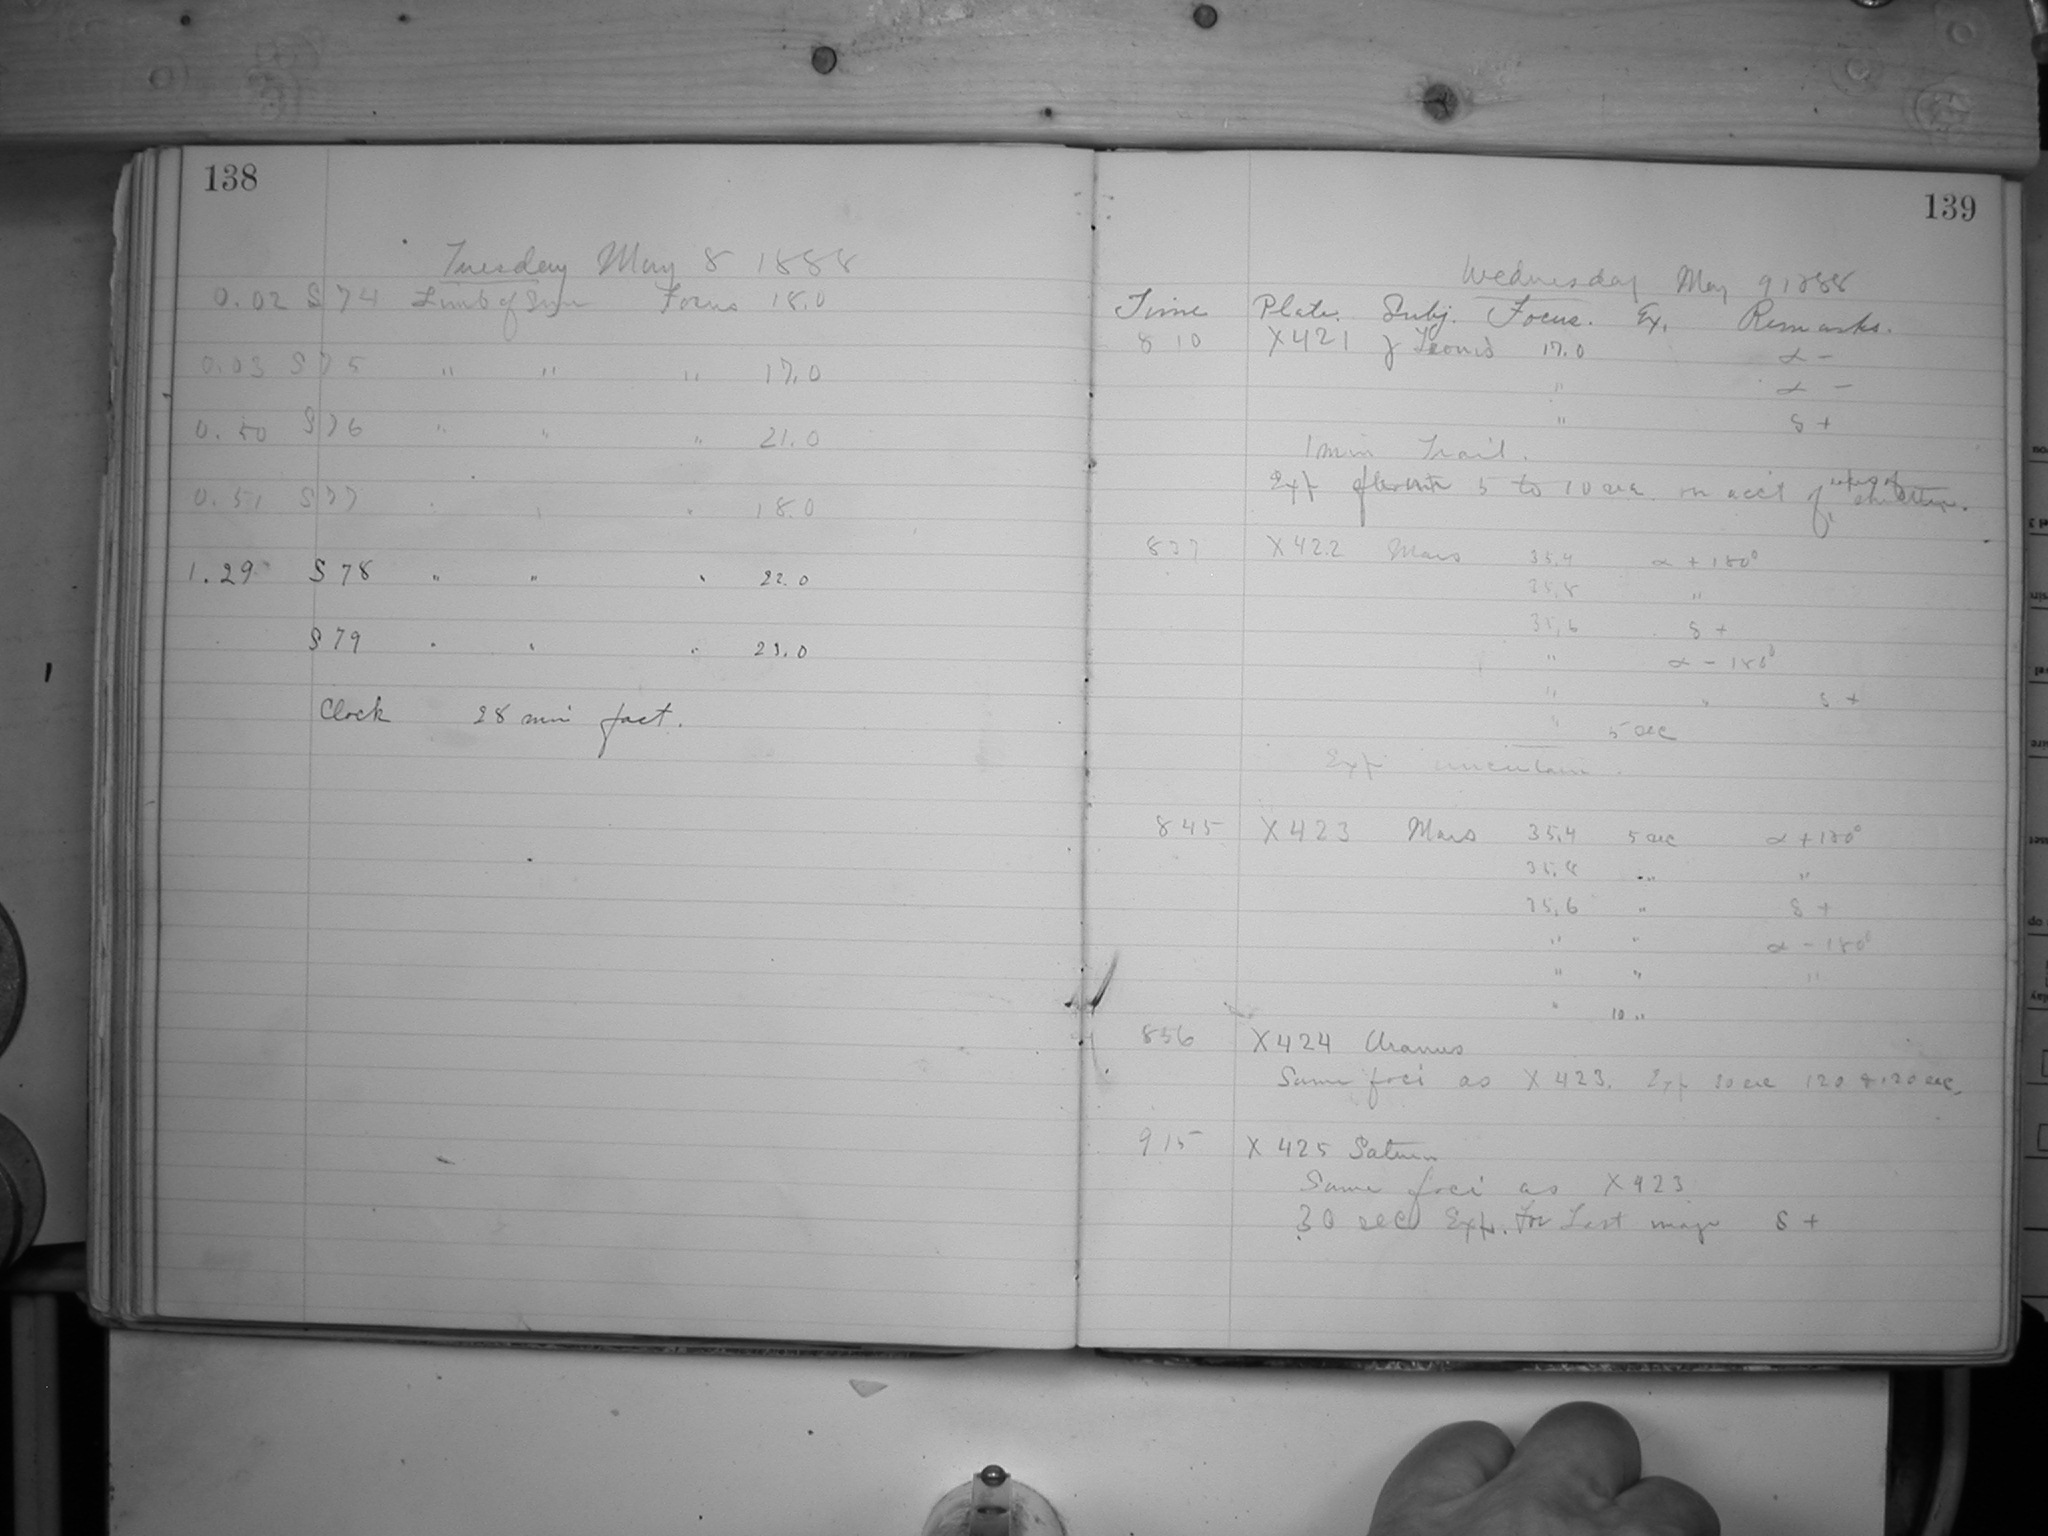 138
Tuesday May 8 1888
0.02 S 74 Limb of Sun Focus 18.0
0.03 S 75 " " " 17.0
0.50 S 76 " " " 21.0
0.51 S 77 " " " 18.0
1.29 S 78 " " " 22.0
S 79 " " " 23.0
Clock 28 min fast.
139
Wednesday May 9 1888
Time Plate. Subj. Focus. Ex. Remarks.
8 10 X 421 γ Leonis 17.0 α -
" α -
" δ +
1 min Trail.
Exp 5 to 10 sec. on acct of shutter.
8 37 X 422 Mars 35.4 α + 180°
35.8 "
35.6 δ +
" α - 180°
" " δ +
" 5 sec
Exp. uncertain.
8 45 X 423 Mars 35.4 5 sec α + 180°
35.8 " "
35.6 " δ +
" " α - 180°
" " "
" 10 "
8 56 X 424 Uranus
Same foci as X 423. Exp 120 & 120 sec.
9 15 X 425 Saturn
Same foci as X 423
30 sec Exp. for Last image δ +